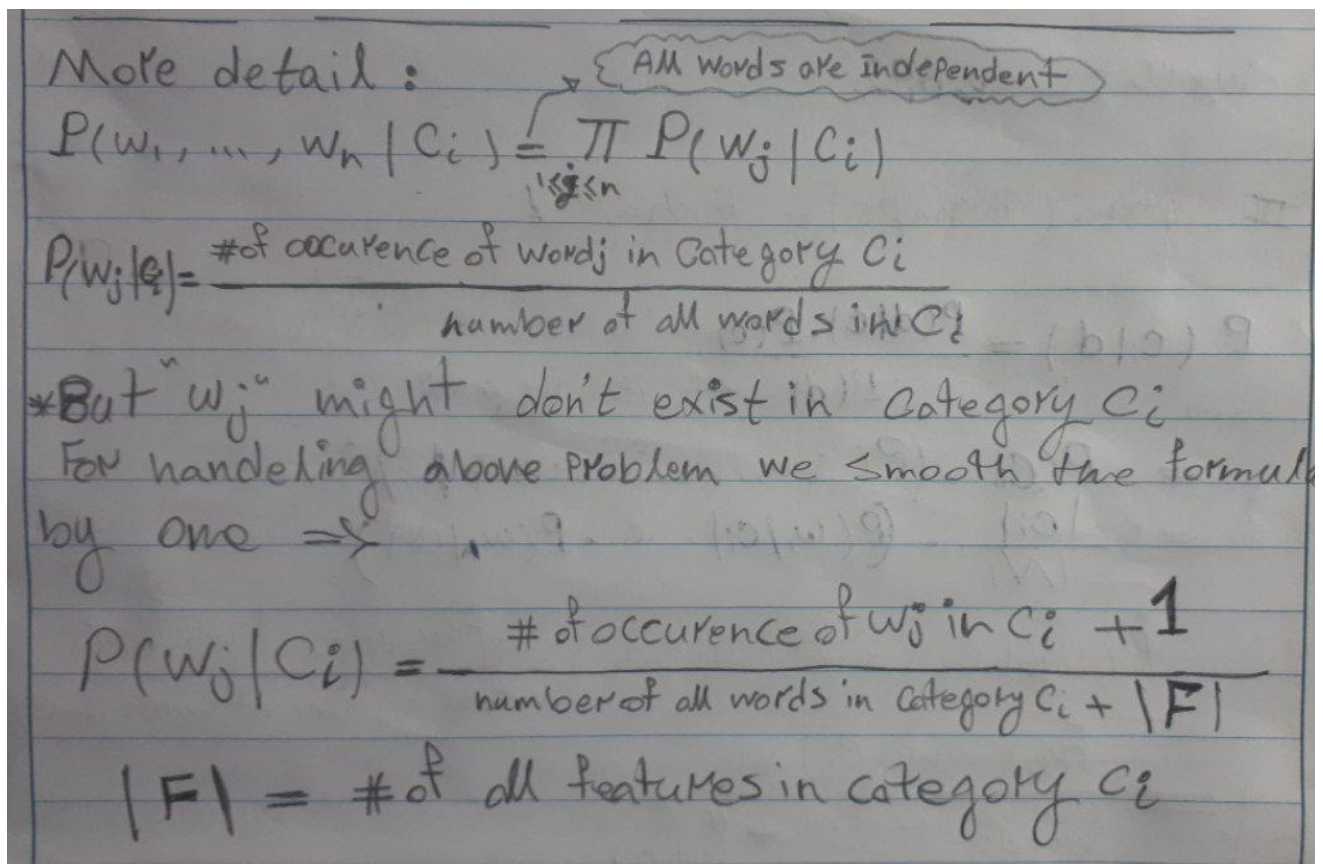 More detail :
All words are independent
P(w₁, ..., wₙ | Cᵢ) = π P(wⱼ | Cᵢ)
1≤j≤n
P(wⱼ|Cᵢ) = #of occurence of wordj in Category Cᵢ
number of all words in Cᵢ
*But "wⱼ" might don't exist in Category Cᵢ
For handeling above Problem we smooth the formula
by one =>
# of occurence of wⱼ in Cᵢ + 1
P(wⱼ|Cᵢ) =
number of all words in Category Cᵢ + |F|
|F| = # of all features in category Cᵢ